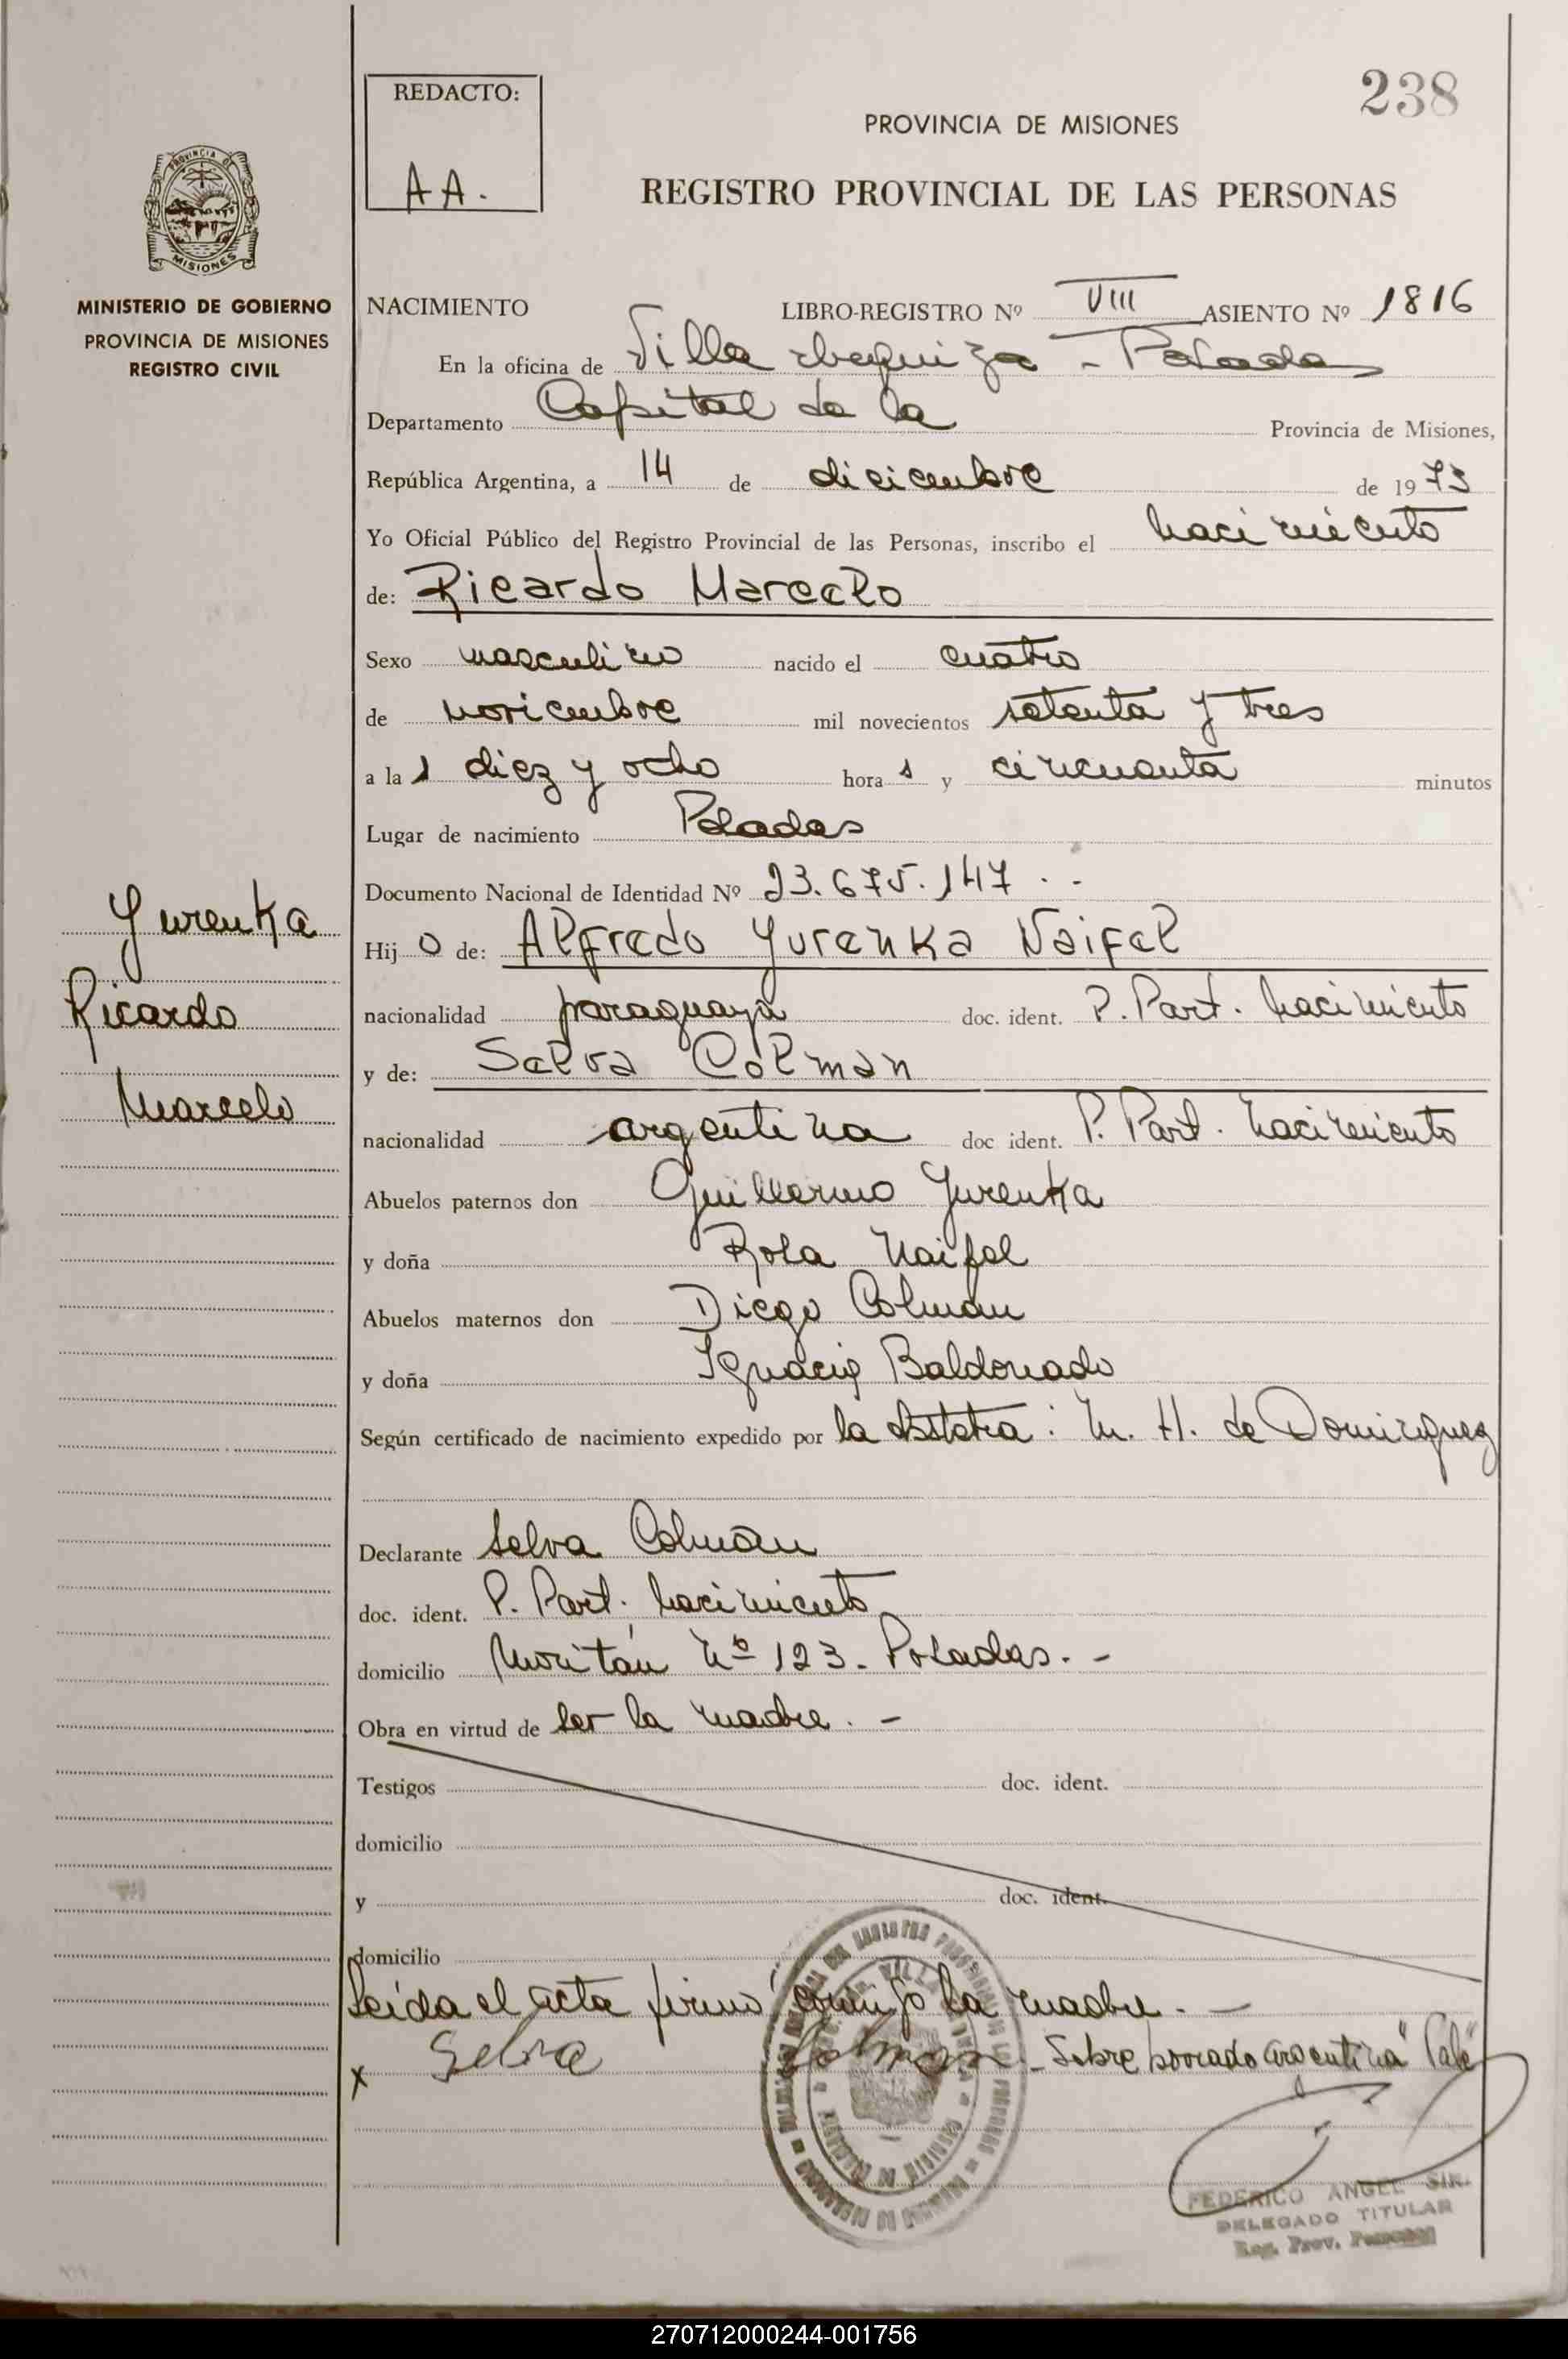 238
REDACTO:
AA.
PROVINCIA DE MISIONES
REGISTRO PROVINCIAL DE LAS PERSONAS
PROVINCIA DE
MISIONES
MINISTERIO DE GOBIERNO
PROVINCIA DE MISIONES
REGISTRO CIVIL
NACIMIENTO LIBRO-REGISTRO Nº VIII ASIENTO Nº 1816
En la oficina de Villa - Posadas
Departamento Capital de la Provincia de Misiones,
República Argentina, a 14 de diciembre de 1973
Yo Oficial Público del Registro Provincial de las Personas, inscribo el nacimiento
de: Ricardo Marcelo
Sexo masculino nacido el cuatro
de noviembre mil novecientos setenta y tres
a las diez y ocho horas y cincuenta minutos
Lugar de nacimiento Posadas
Documento Nacional de Identidad Nº 23.675.147 . -
Hijo de: Alfredo Yurenka Naifel
nacionalidad paraguaya doc. ident. P. Part. nacimiento
y de: Selva Colman
nacionalidad argentina doc ident. P. Part. nacimiento
Abuelos paternos don Guillermo Yurenka
y doña Rosa Naifel
Abuelos maternos don Diego Colman
y doña Ignacia Baldonado
Según certificado de nacimiento expedido por la obstetra: M. H. de Dominguez
Declarante Selva Colman
doc. ident. P. Part. nacimiento
domicilio Nº 123. Posadas. -
Obra en virtud de ser la madre. -
Testigos doc. ident.
domicilio
y doc. ident.
domicilio
Leída el acta firmó conmigo la madre. -
x Selva Colman - Sobre borrado argentina" Vale"
FEDERICO ANGEL
DELEGADO TITULAR
Reg. Prov. Personas
Yurenka
Ricardo
Marcelo
270712000244-001756